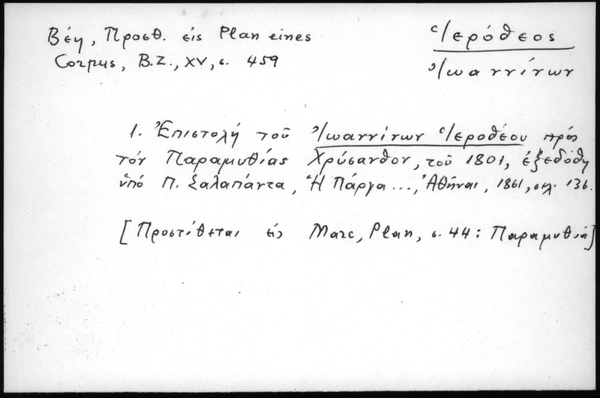 Βέη, Προσθ. εἰς Plan eines
Corpus, B.Z., XV, σ. 459
Ἱερόθεος
Ἰωαννίνων
1. Ἐπιστολή τοῦ Ἰωαννίνων Ἱεροθέου πρός
τόν Παραμυθίας Χρύσανθον, τοῦ 1801, ἐξεδόθη
ὑπό Π. Σαλαπάντα, Ἡ Πάργα..., Ἀθῆναι, 1861, σελ. 136.
[Προστίθεται εἰς Marc, Plan, σ. 44: Παραμυθιά]